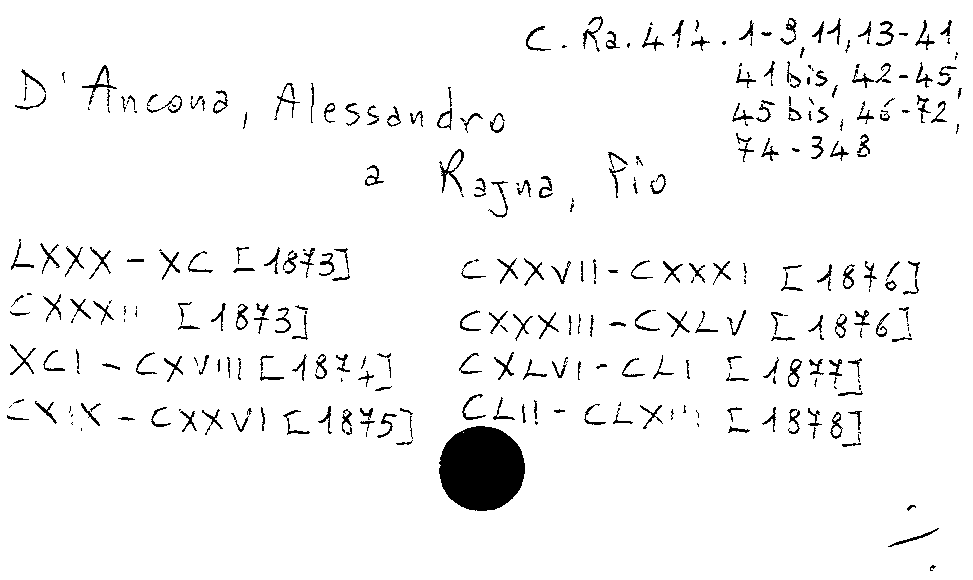 C. Ra. 414. 1-9, 11, 13-41,
41 bis, 42-45,
45 bis, 46-72,
74-348
D'Ancona, Alessandro
a Rajna, Pio
LXXX - XC [1873]
CXXXII [1873]
XCI - CXVIII [1874]
CXIX - CXXVI [1875]
CXXVII - CXXXI [1876]
CXXXIII - CXLV [1876]
CXLVI - CLI [1877]
CLII - CLXIII [1878]
./.